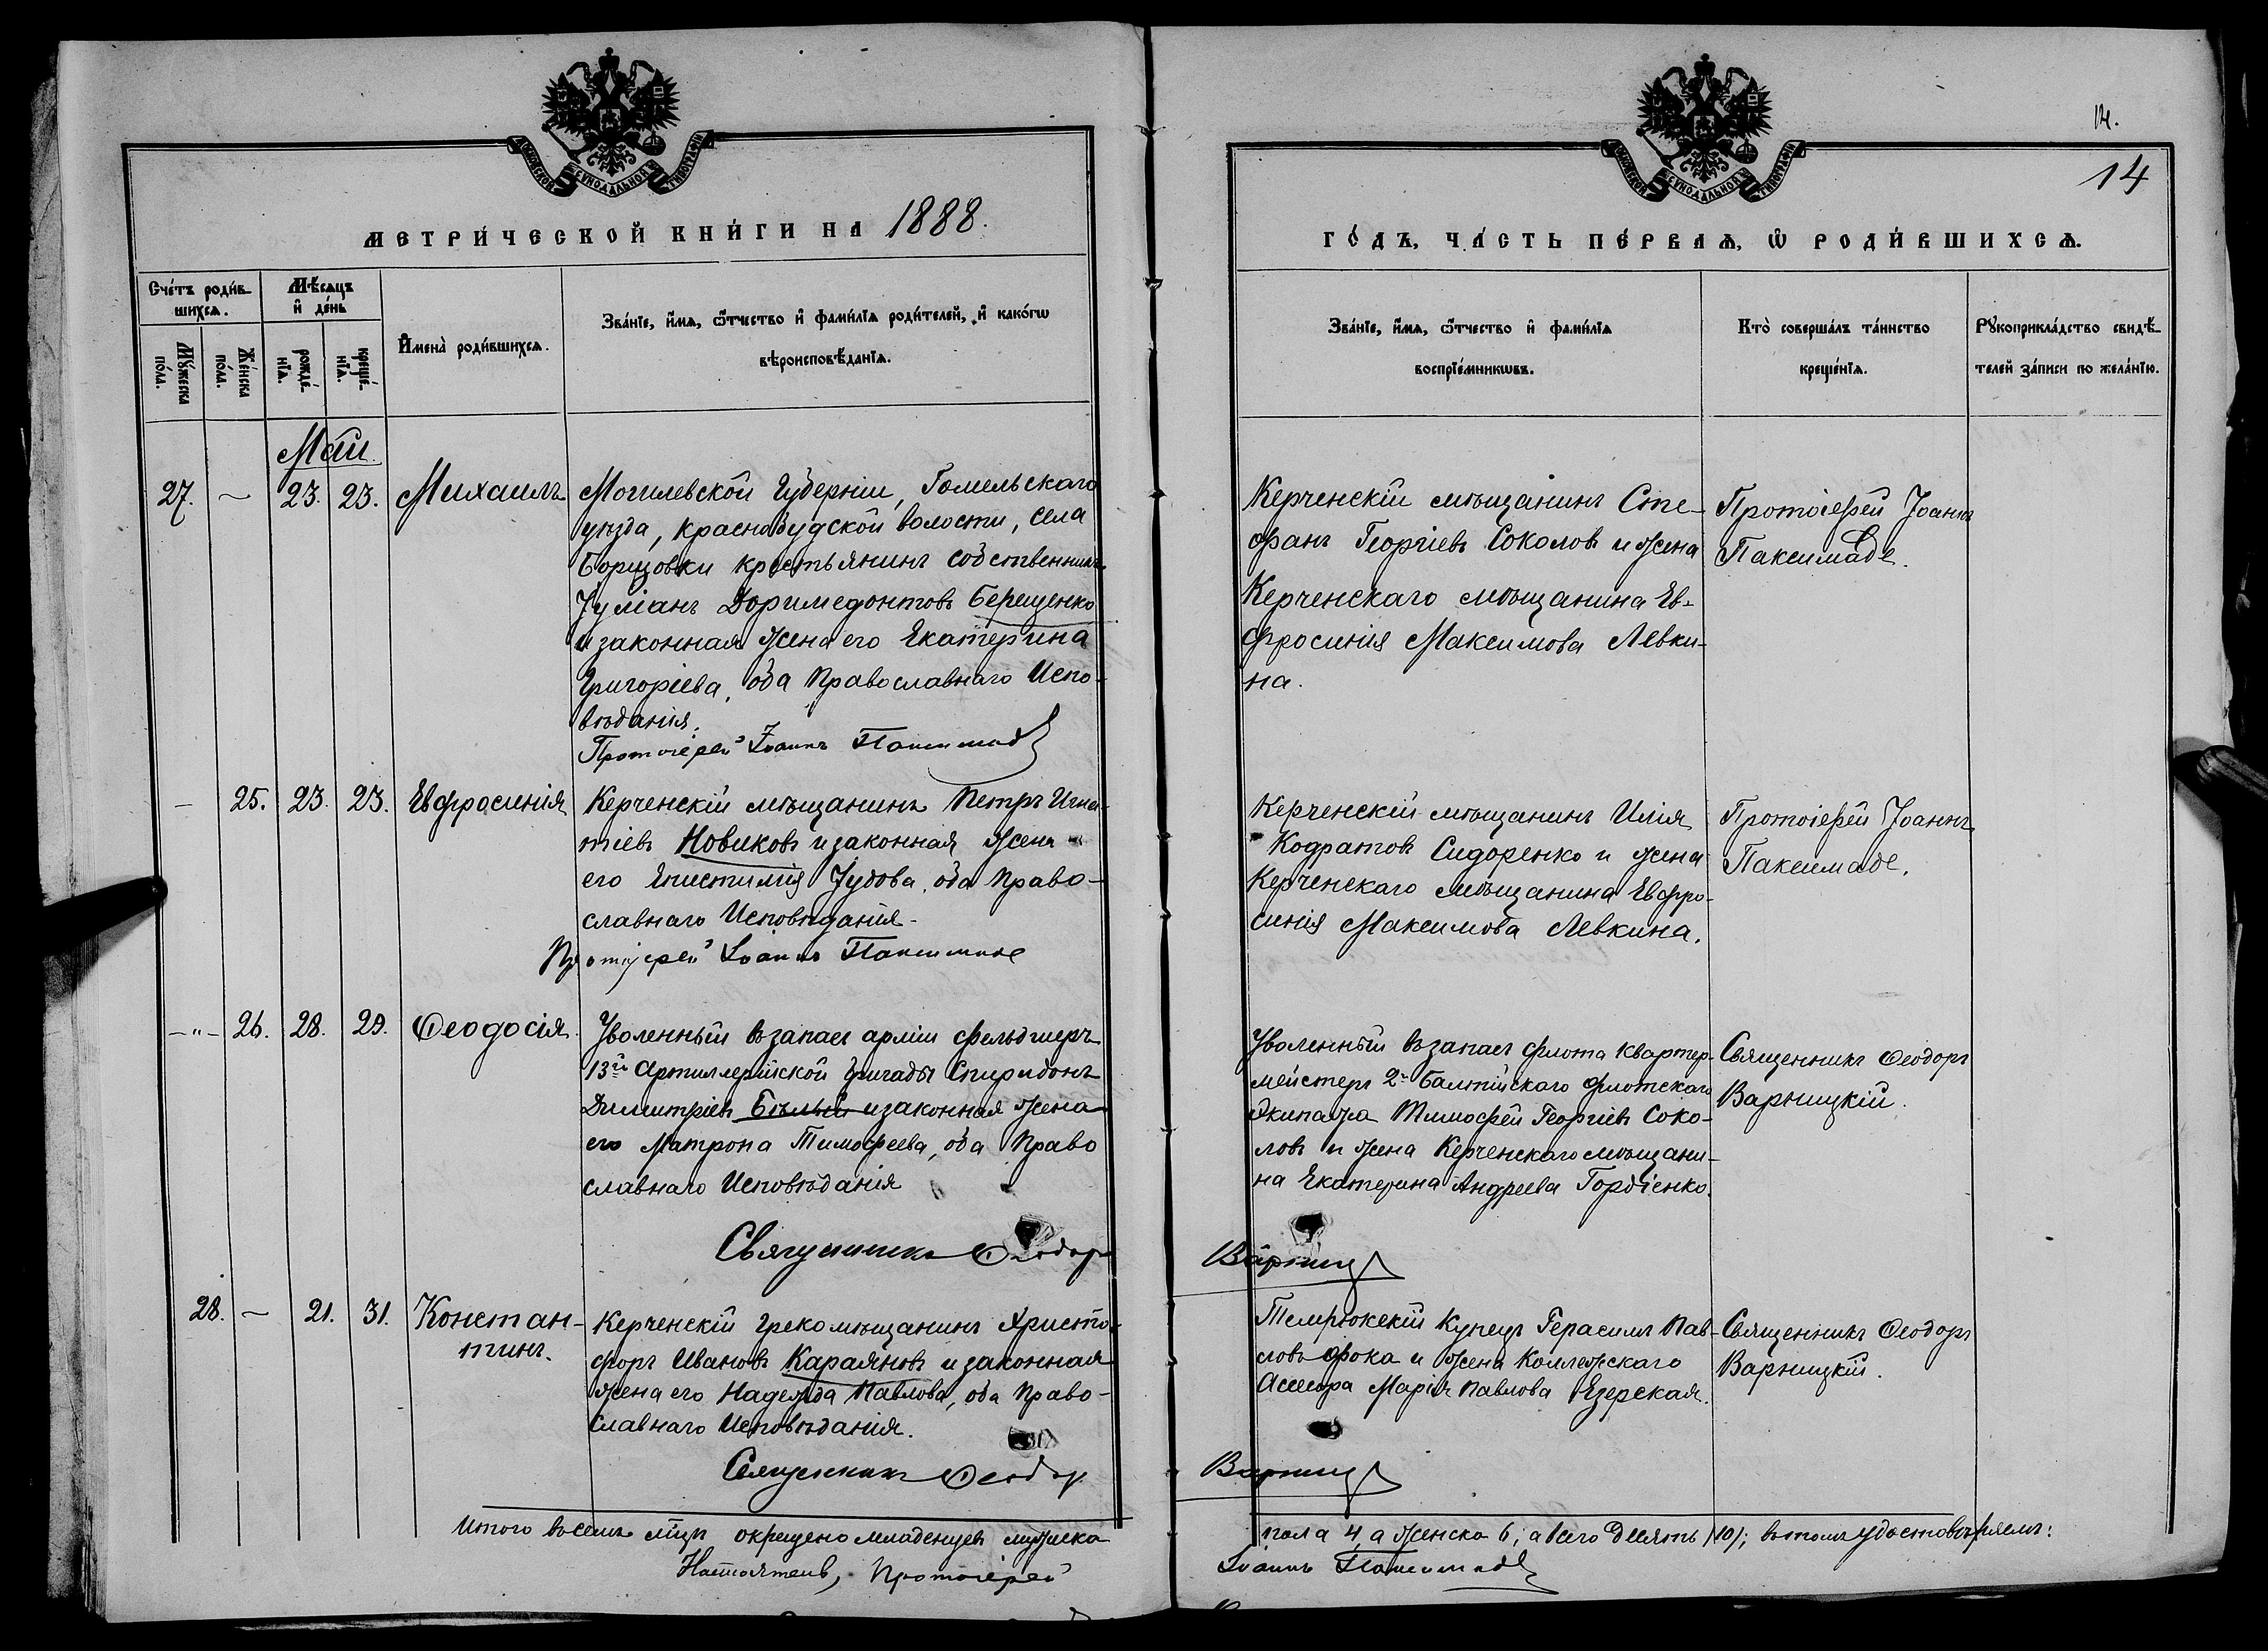 МОСКОВСКОЙ СУНОДАЛЬНОЙ ТИПОГРАФІИ
МЕТРИ́ЧЕСКОЙ КНИ́ГИ НА 1888.
Сче́тъ роди́в-
шихсѧ.
Мѣ́сѧцъ
и҆ де́нь
Мꙋ́жеска
по́ла.
Же́нска
по́ла.
рожде́-
нїѧ.
креще́-
нїѧ.
И҆мена̀ роди́вшихсѧ.
Зва́нїе, и҆́мѧ, ѻ҆́тчество и҆ фами́лїѧ роди́телей, и҆ како́гѡ
вѣроисповѣ́данїѧ.
Май.
27. ~ 23. 23. Михаилъ
Могилевской Губерніи, Гомельскаго
уѣзда, Краснобудской волости, села
Борщовки крестьянинъ собственникъ
Іуліанъ Доримедонтовъ Берещенко
и законная жена его Екатерина
Григоріева, оба Православнаго Испо-
вѣданія.
Протоіерей Іоаннъ Паксимаде
— 25. 23. 23. Евфросинія
Керченскій мѣщанинъ Петръ Игна-
тіевъ Новиковъ и законная жена
его Епистимія Іудова, оба Право-
славнаго Исповѣданія.
Протоіерей Іоаннъ Паксимаде
—"— 26. 28. 29. Ѳеодосія.
Уволенный въ запасъ арміи фельдшеръ
13й Артиллерійской бригады Спиридонъ
Димитріевъ Бѣлый и законная жена
его Матрона Тимофеева, оба Право
славнаго Исповѣданія
Священникъ Ѳеодоръ
28. ~ 21. 31. Констан-
тинъ.
Керченскій грекомѣщанинъ Христо-
форъ Ивановъ Караяновъ и законная
жена его Надежда Павлова, оба Право-
славнаго Исповѣданія.
Священникъ Ѳеодоръ
Итого въ семъ мѣсяцѣ окрещено младенцевъ мужска
Настоятель, Протоіерей
14
МОСКОВСКОЙ СУНОДАЛЬНОЙ ТИПОГРАФІИ
ГО́ДЪ, ЧА́СТЬ ПЕ́РВАѦ, Ѽ РОДИ́ВШИХСѦ.
Зва́нїе, и҆́мѧ, ѻ҆́тчество и҆ фами́лїѧ
воспрїе́мникѡвъ.
Кто̀ соверша́лъ та́инство
креще́нїѧ.
Рꙋкоприкла́дство свидѣ́-
телей за́писи по жела́нїю.
Керченскій мѣщанинъ Сте-
фанъ Георгіевъ Соколовъ и жена
Керченскаго мѣщанина Ев-
фросинія Максимова Левки-
на.
Протоіерей Іоаннъ
Паксимаде.
Керченскій мѣщанинъ Илія
Кодратовъ Сидоренко и жена
Керченскаго мѣщанина Евфро-
синія Максимова Левкина.
Протоіерей Іоаннъ
Паксимаде.
Уволенный въ запасъ флота квартер-
мейстеръ 2го Балтійскаго флотскаго
Экипажа Тимофей Георгіевъ Соко-
ловъ и жена Керченскаго мѣщани-
на Екатерина Андреева Гордіенко.
Священникъ Ѳеодоръ
Варницкій.
Варниц
Темрюкскій купецъ Герасимъ Пав-
ловъ Фока и жена Коллежскаго
Ассесора Марія Павлова Езерская.
Священникъ Ѳеодоръ
Варницкій.
Варниц
пола 4, а женска 6, а всего десять (10); въ томъ удостовѣряемъ:
Іоаннъ Паксимаде